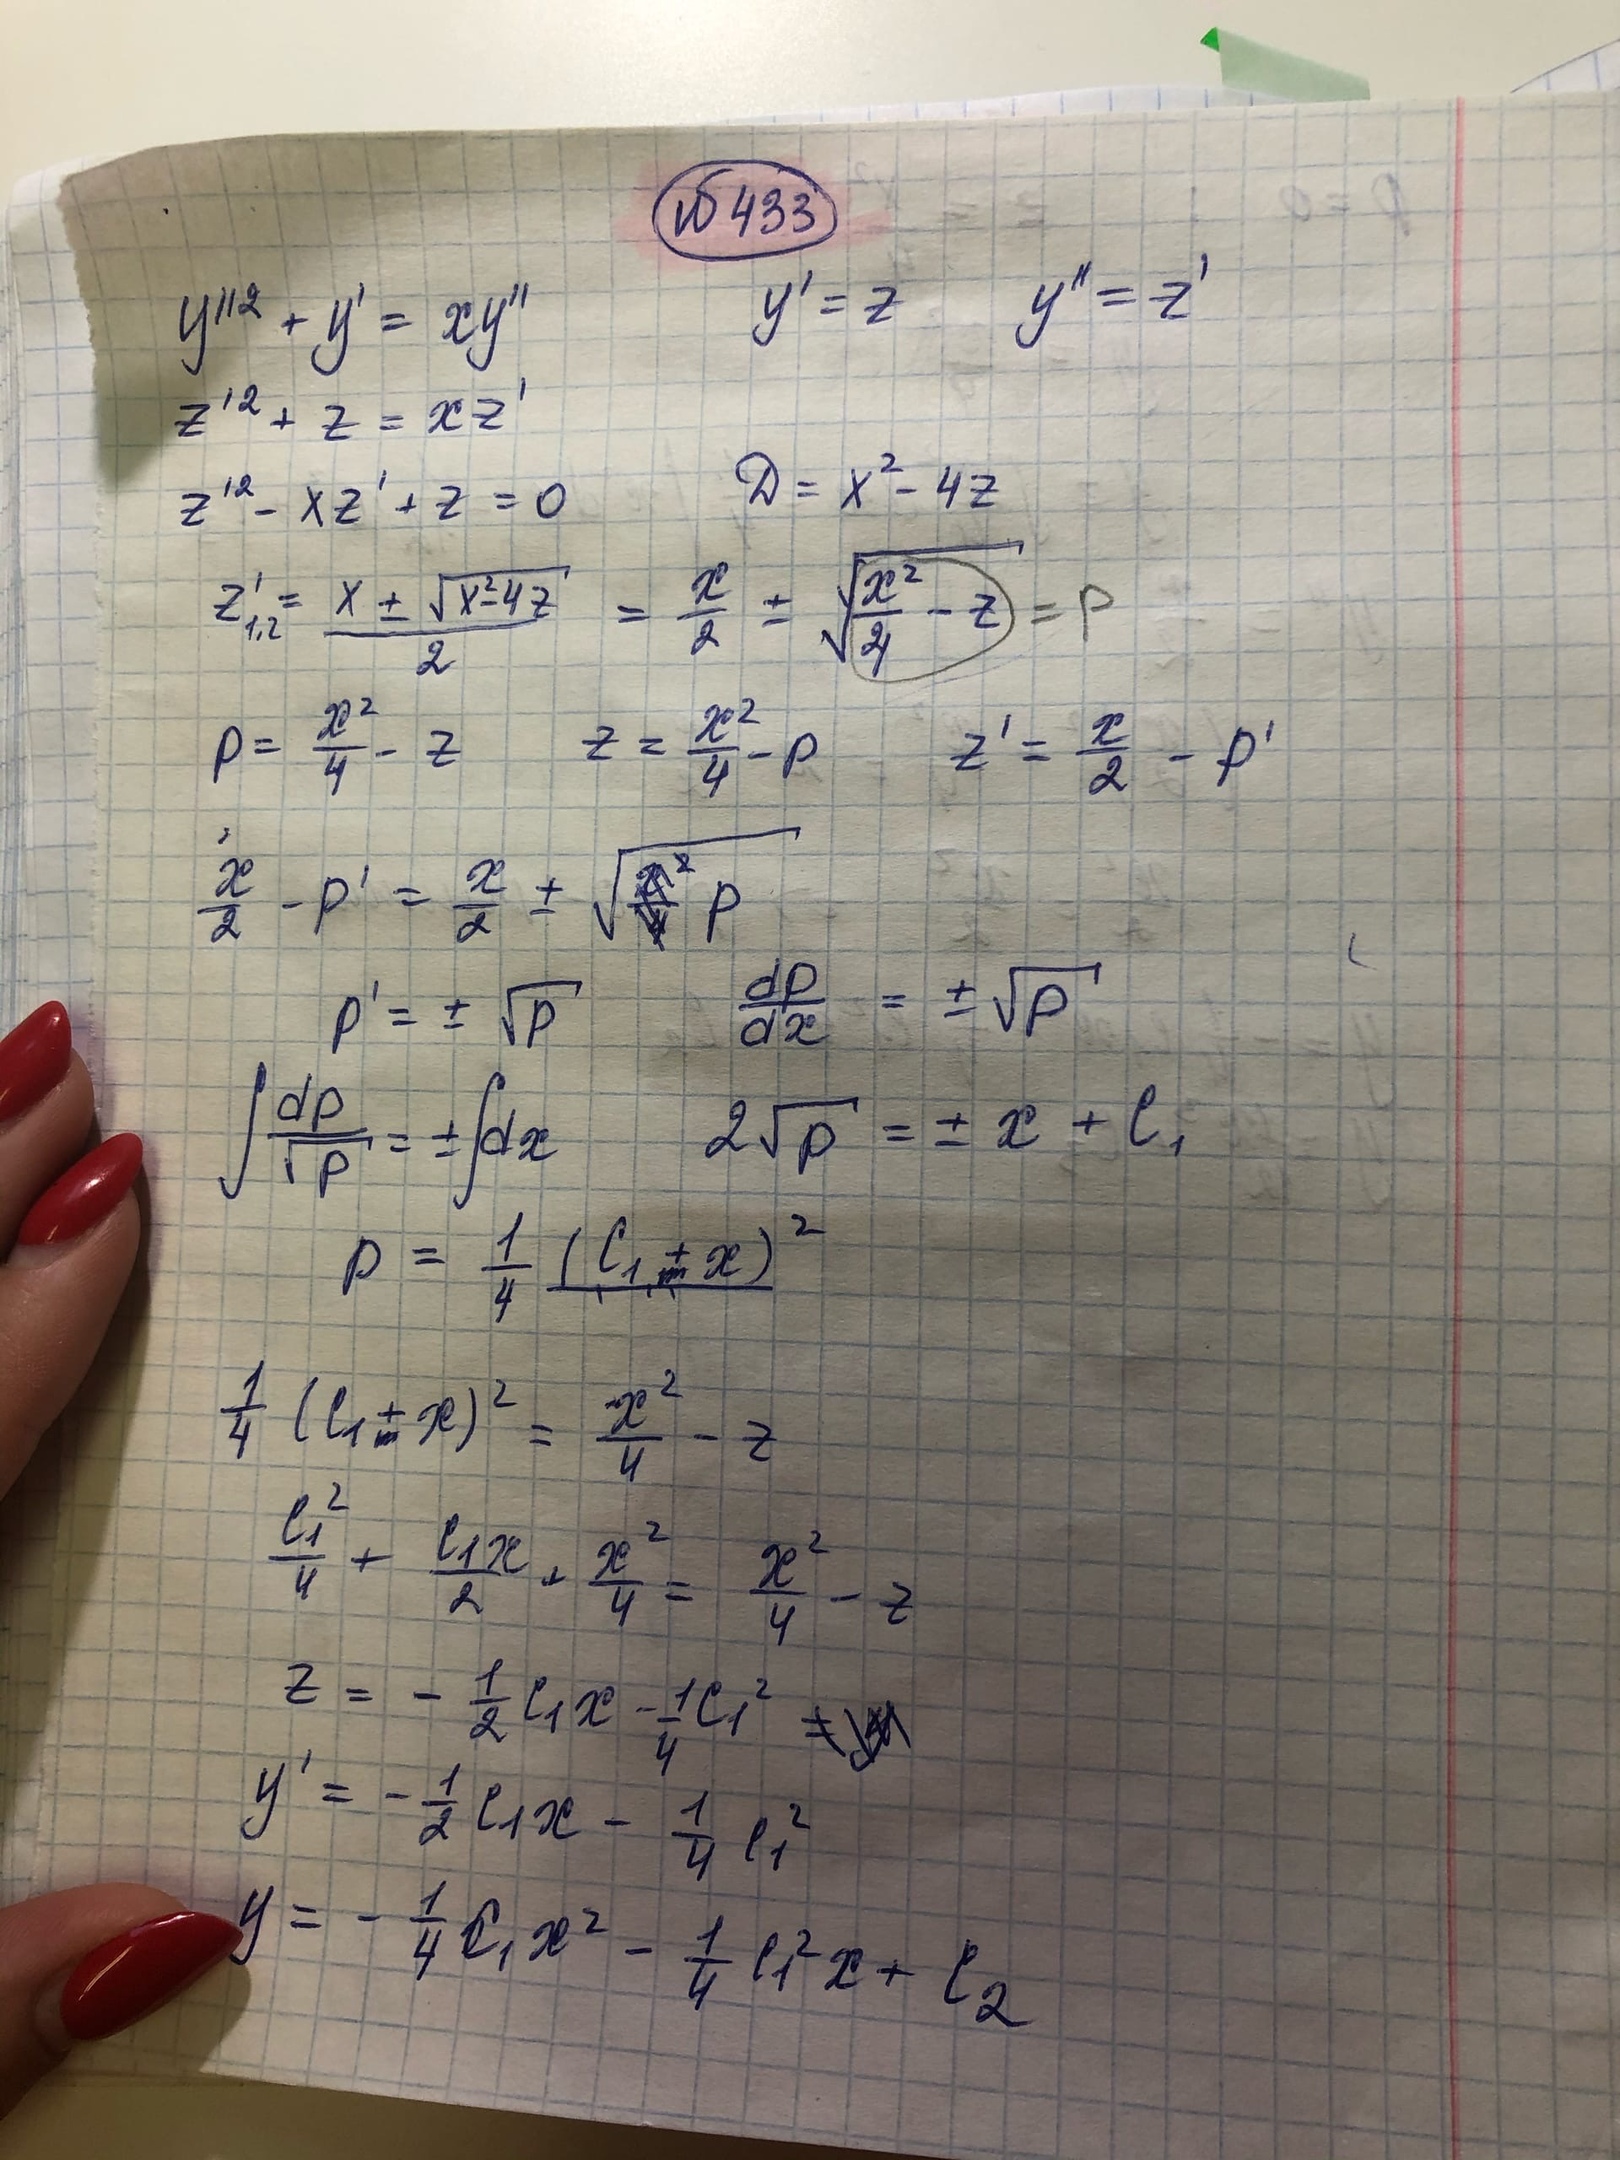 №433
y''² + y' = xy''  y' = z  y'' = z'
z'² + z = xz'
z'² - xz' + z = 0  D = x² - 4z
z'₁,₂ = (x ± √(x²-4z))/2 = x/2 ± √(x²/4 - z) = p
p = x²/4 - z  z = x²/4 - p  z' = x/2 - p'
x/2 - p' = x/2 ± √p
p' = ± √p  dp/dx = ± √p
∫dp/√p = ±∫dx  2√p = ± x + C₁
p = 1/4 (C₁ ± x)²
1/4 (C₁ ± x)² = x²/4 - z
C₁²/4 + C₁x/2 + x²/4 = x²/4 - z
z = - 1/2 C₁x - 1/4 C₁²
y' = - 1/2 C₁x - 1/4 C₁²
y = - 1/4 C₁x² - 1/4 C₁²x + C₂